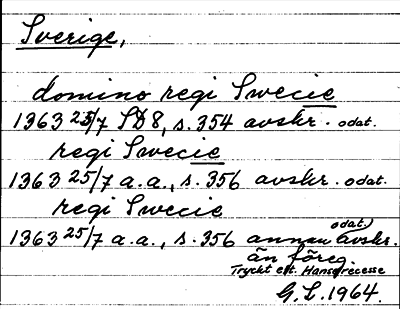 Sverige,
domino regi Swecie
1363 25/7 SD8, s. 354 avskr. odat.
regi Swecie
1363 25/7 a.a., s. 356 avskr. odat.
regi Swecie
odat.)
1363 25/7 a.a., s. 356 annan avskr.
än föreg.
Tryckt eft. Hanserecesse
G.L. 1964.